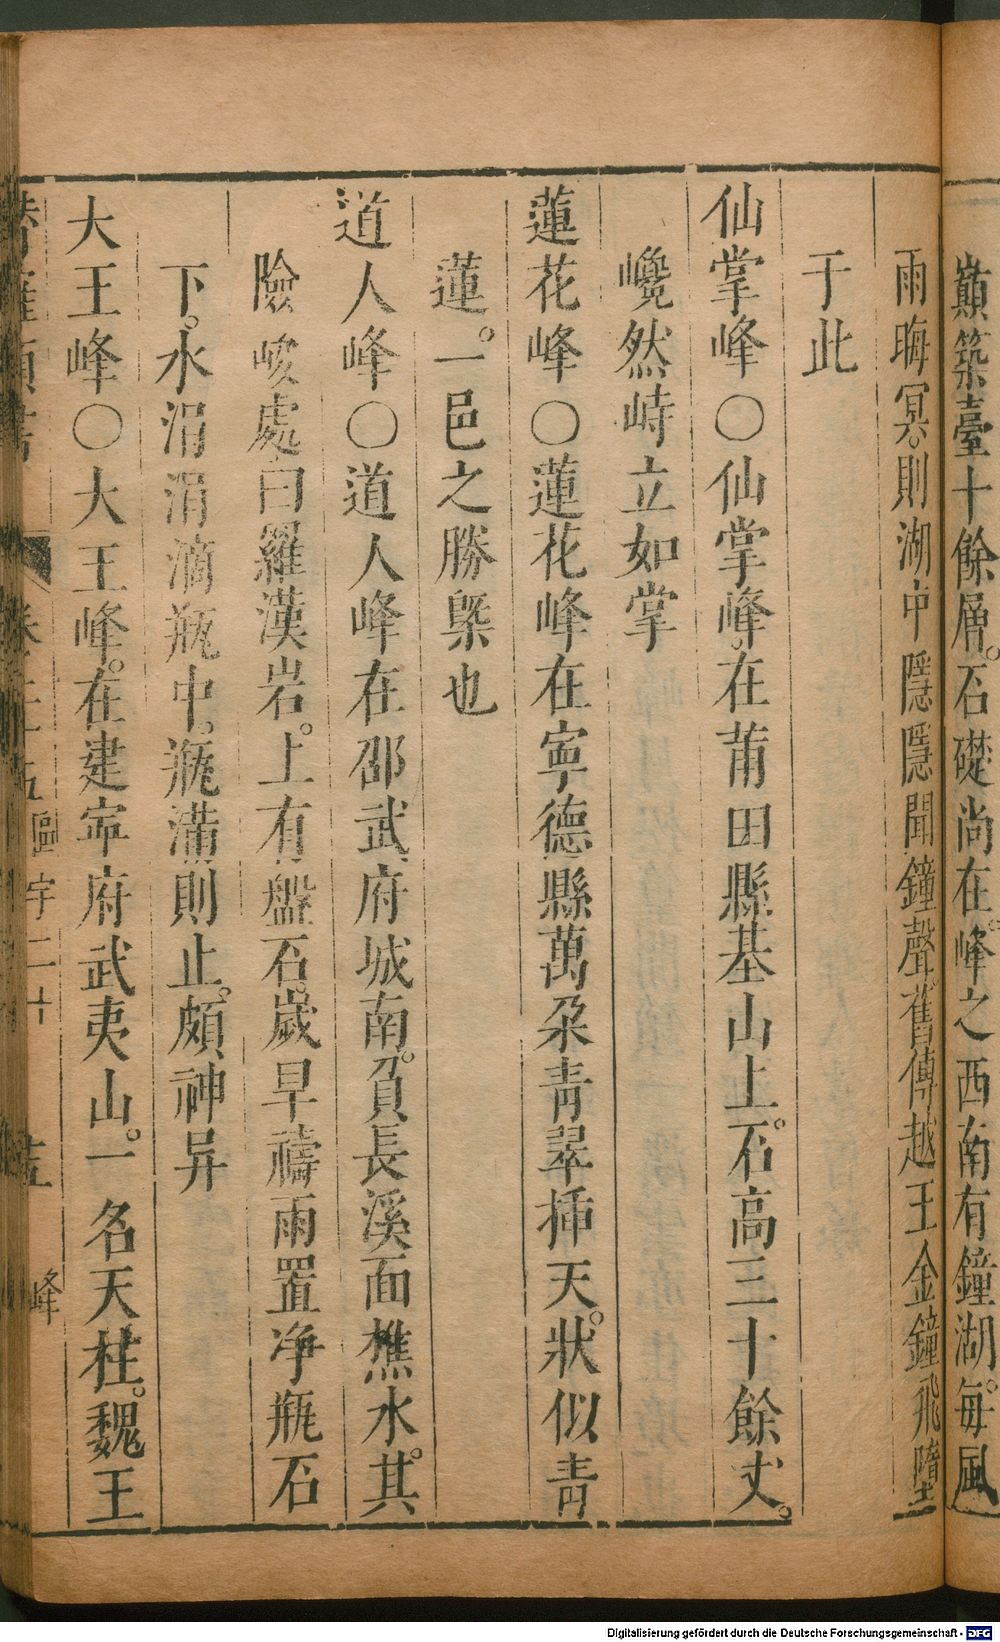 巔築臺十餘層石礎尚在峰之西南有鐘湖每風
雨晦冥則湖中隱隱聞鐘聲舊傳越王金鐘飛墮
于此
仙掌峰○仙掌峰在莆田縣基山上石高三十餘丈
巉然峙立如掌
蓮花峰○蓮花峰在寧德縣萬朶青翠揷天狀似青
蓮一邑之勝槩也
道人峰○道人峰在邵武府城南負長溪面樵水其
險峻處曰羅漢岩上有盤石歲旱禱雨置净瓶石
下水涓涓滴瓶中瓶滿則止頗神异
大王峰○大王峰在建寜府武夷山一名天柱魏王
區宇二十
峰
Digitalisierung gefördert durch die Deutsche Forschungsgemeinschaft - DFG